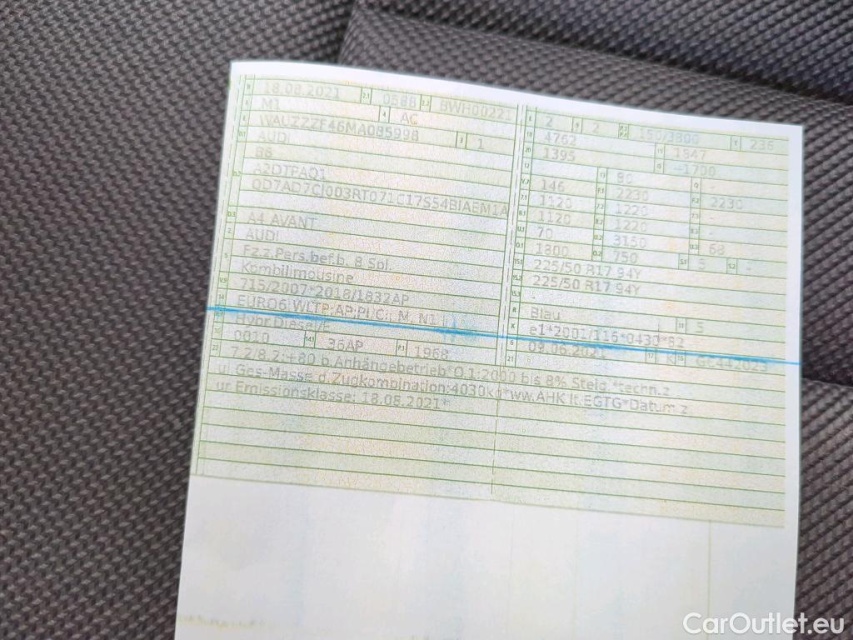 18.08.2021 0588 BWH00221
M1 AC
WAUZZZF46MA085998 1
AUDI
B8
A2DTPAQ1
0D7AD7CJ003RT071C17S54BIAEM1A
A4 AVANT
AUDI
Fz.z.Pers.bef.b. 8 Spl.
Kombilimousine
715/2007*2018/1832AP
EURO6;WLTP;AP;PI/CI; M, N1 I
Hybr.Diesel/E
0010 36AP 1968
2 2 150/3800 236
4762 1847
1395 -1700
80 -
146 2230 2230
1120 1220 -
1120 1220 -
70 3150 68
1800 750 5 -
225/50 R17 94Y
225/50 R17 94Y
-
Blau 5
e1*2001/116*0430*82
09.06.2021 K
7.2/8.2:+80 b.Anhängebetrieb*O.1:2000 bis 8% Steig.*techn.z
ul Ges-Masse d.Zugkombination:4030kg*ww.AHK lt.EGTG*Datum z
ur Emissionsklasse: 18.08.2021*
CarOutlet.eu